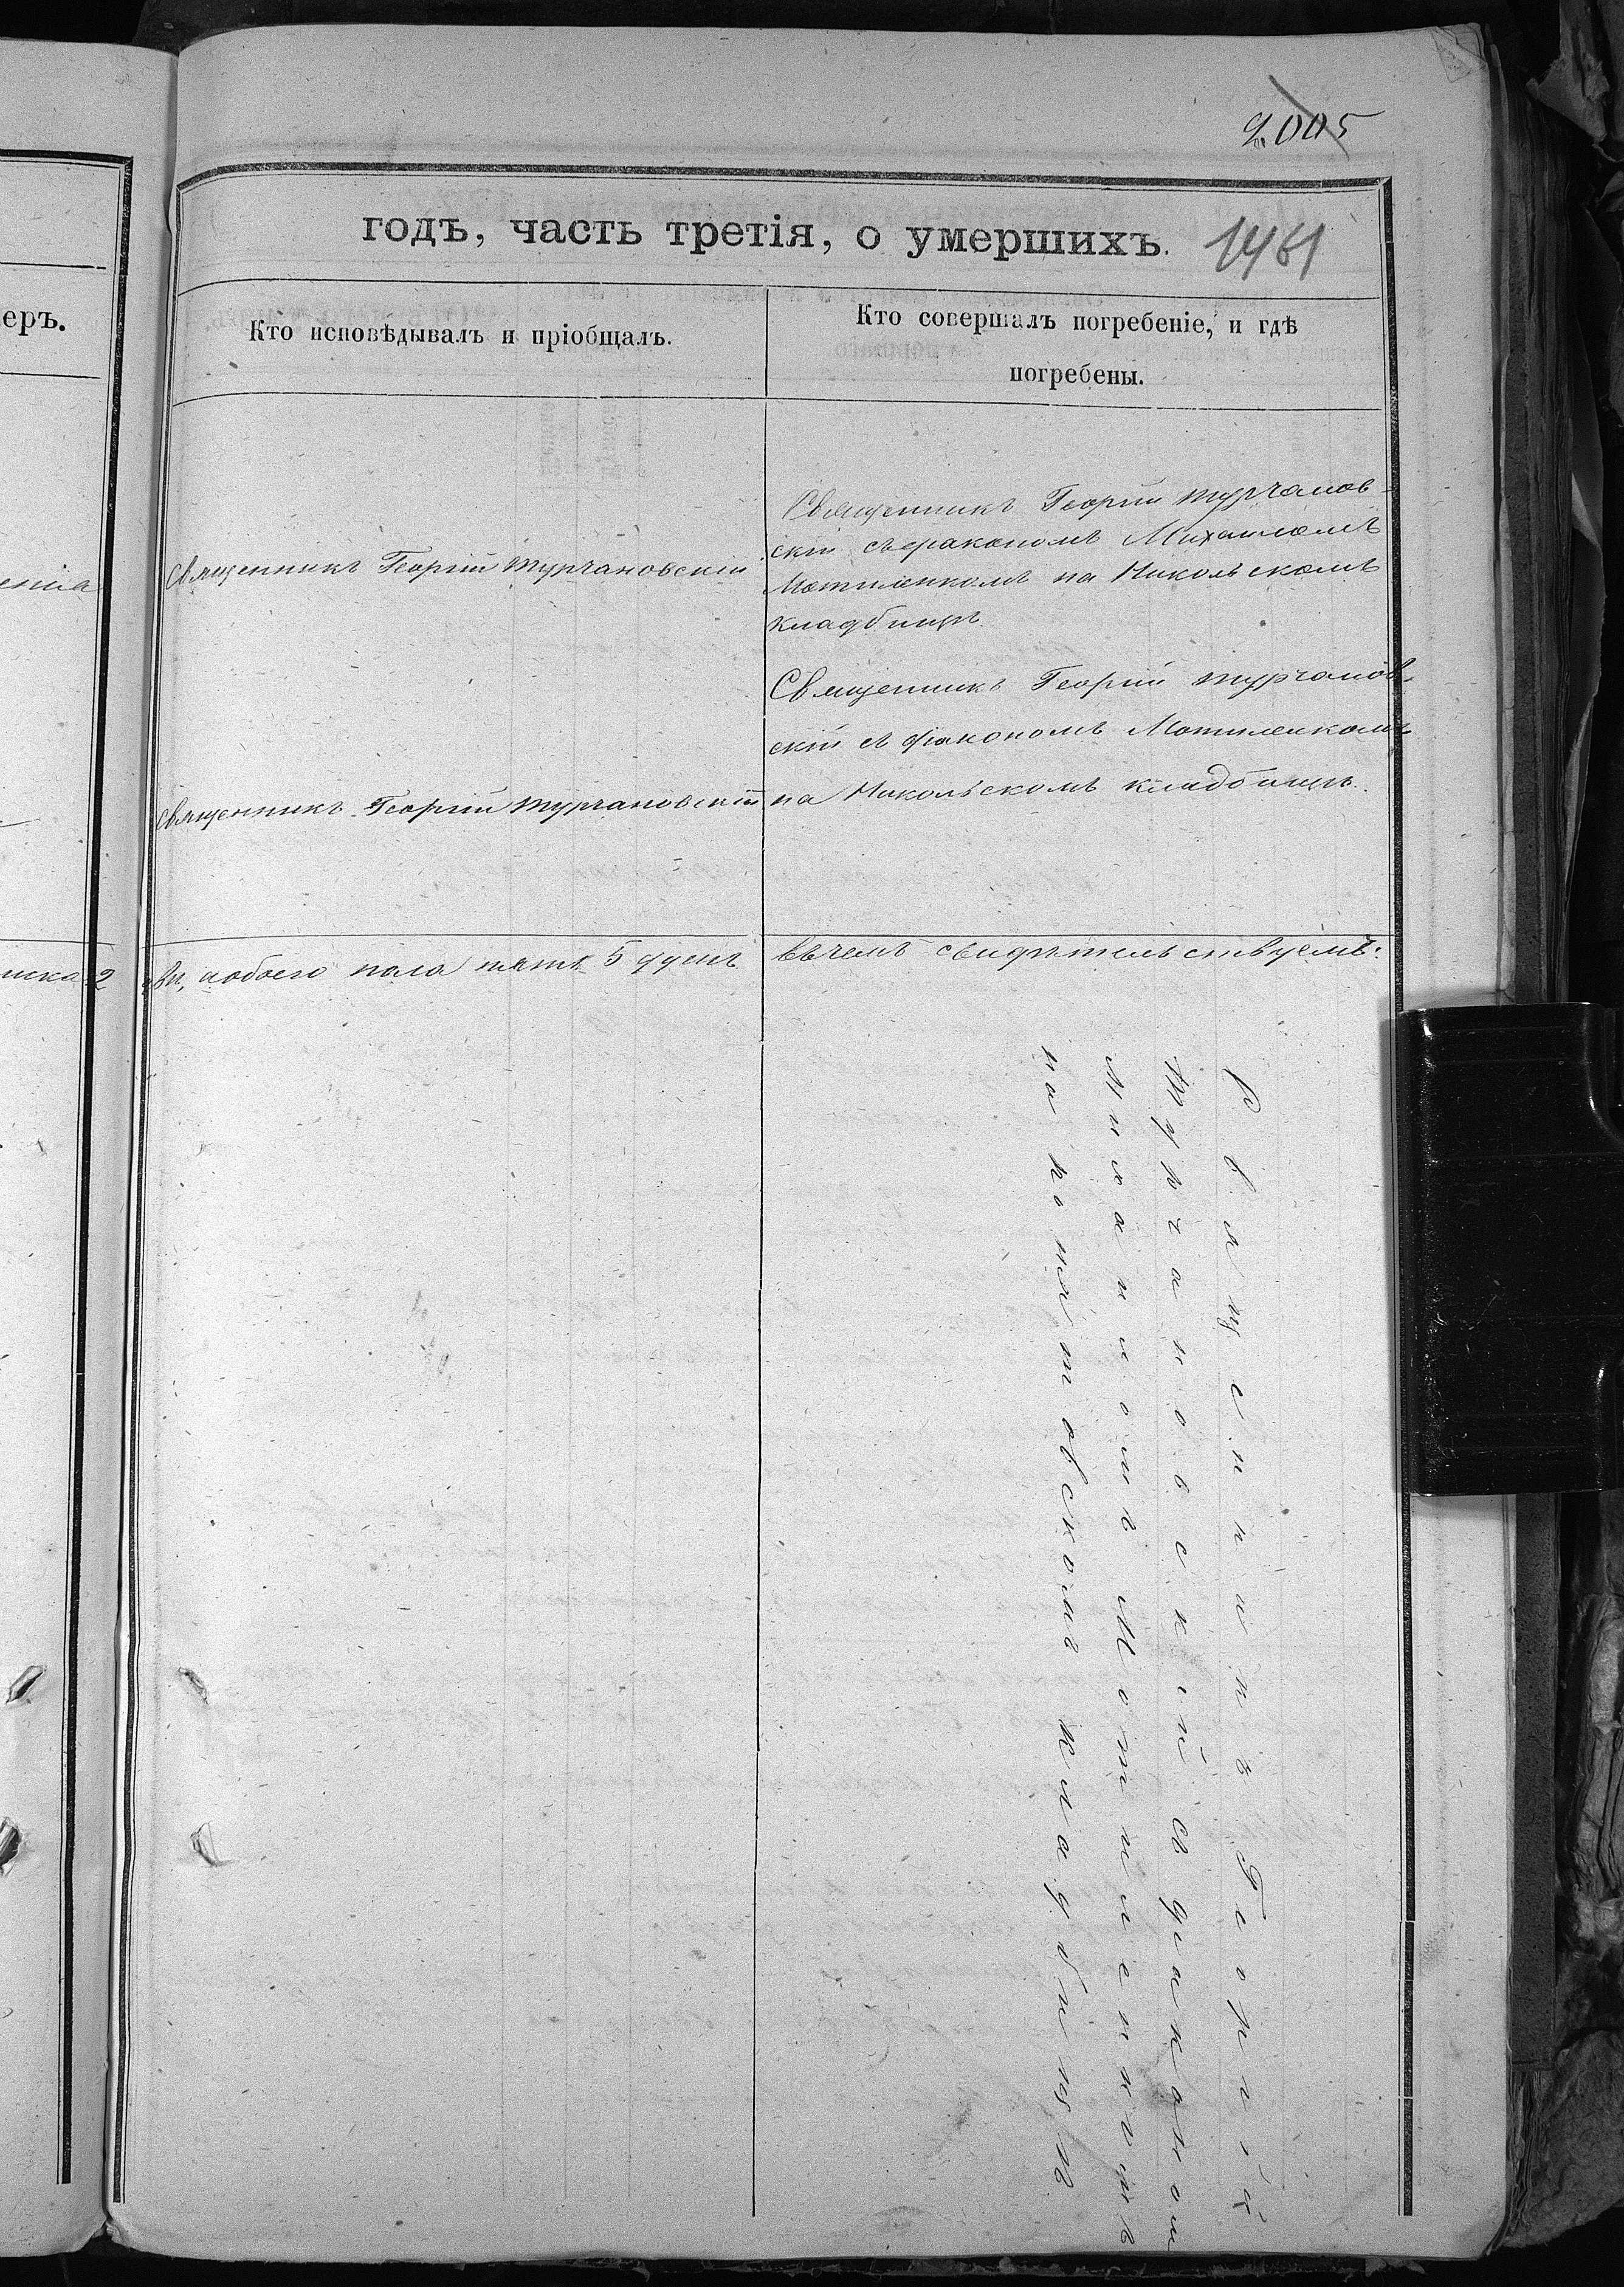 2005
годъ, часть третія, о умершихъ.
1461
еръ.
Кто исповѣдывалъ и пріобщалъ.
Кто совершалъ погребеніе, и гдѣ
погребены.
Священникъ Георгій Турчановскій
Священникъ Георгій Турчанов-
скій съ діакономъ Михаиломъ
Мотиленкомъ на Никольскомъ
кладбищѣ.
Священникъ Георгій Турчановскій
Священникъ Георгій Турчанов-
скій съ діакономъ Мотиленкомъ
на Никольскомъ кладбищѣ.
2 двѣ, а обоего пола пять 5 душъ
въ чемъ свидѣтельствуемъ:
Священникъ Георгій
Турчановскій съ діаконом
Михаиломъ Мотиленкомъ
на кладбищѣ